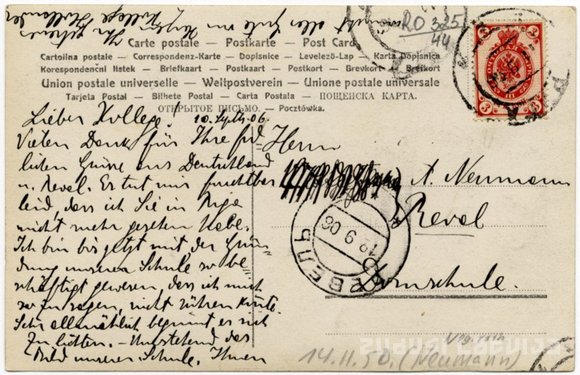 RO 325
44
Carte postale – Postkarte – Post Card
Cartolina postale – Correspondenz-Karte – Dopisnice – Levelező-Lap – Karta Dopisnica
Korespondenční listek – Briefkaart – Postkaart – Postkort – Brevkort – Brefkort
Union postale universelle – Weltpostverein – Unione postale universale
Tarjeta Postal – Bilhete Postal – Carta Postala – ПОЩЕНСКА КАРТА.
ОТКРЫТОЕ ПИСЬМО. – Pocztówka.
Lieber Kollege! 10. Septb. 06.
Vielen Dank für Ihre frd
lichen Grüsse aus Deutschland
u. Reval. Es tut mir furchtbar
leid, dass ich Sie in Riga
nicht mehr gesehen habe.
Ich bin bis jetzt mit der Grün
dung unserer Schule so be
schäftigt gewesen, dass ich mich
so zu sagen, nicht rühren konnte.
Sehr allmählich beginnt es sich
zu lichten. – Umstehend das
Bild unserer Schule. Ihnen
Herrn
A. Neumann
Reval
Domschule.
РЕВЕЛЬ
12 9 06
3 3
14.11.50. (Neumann)